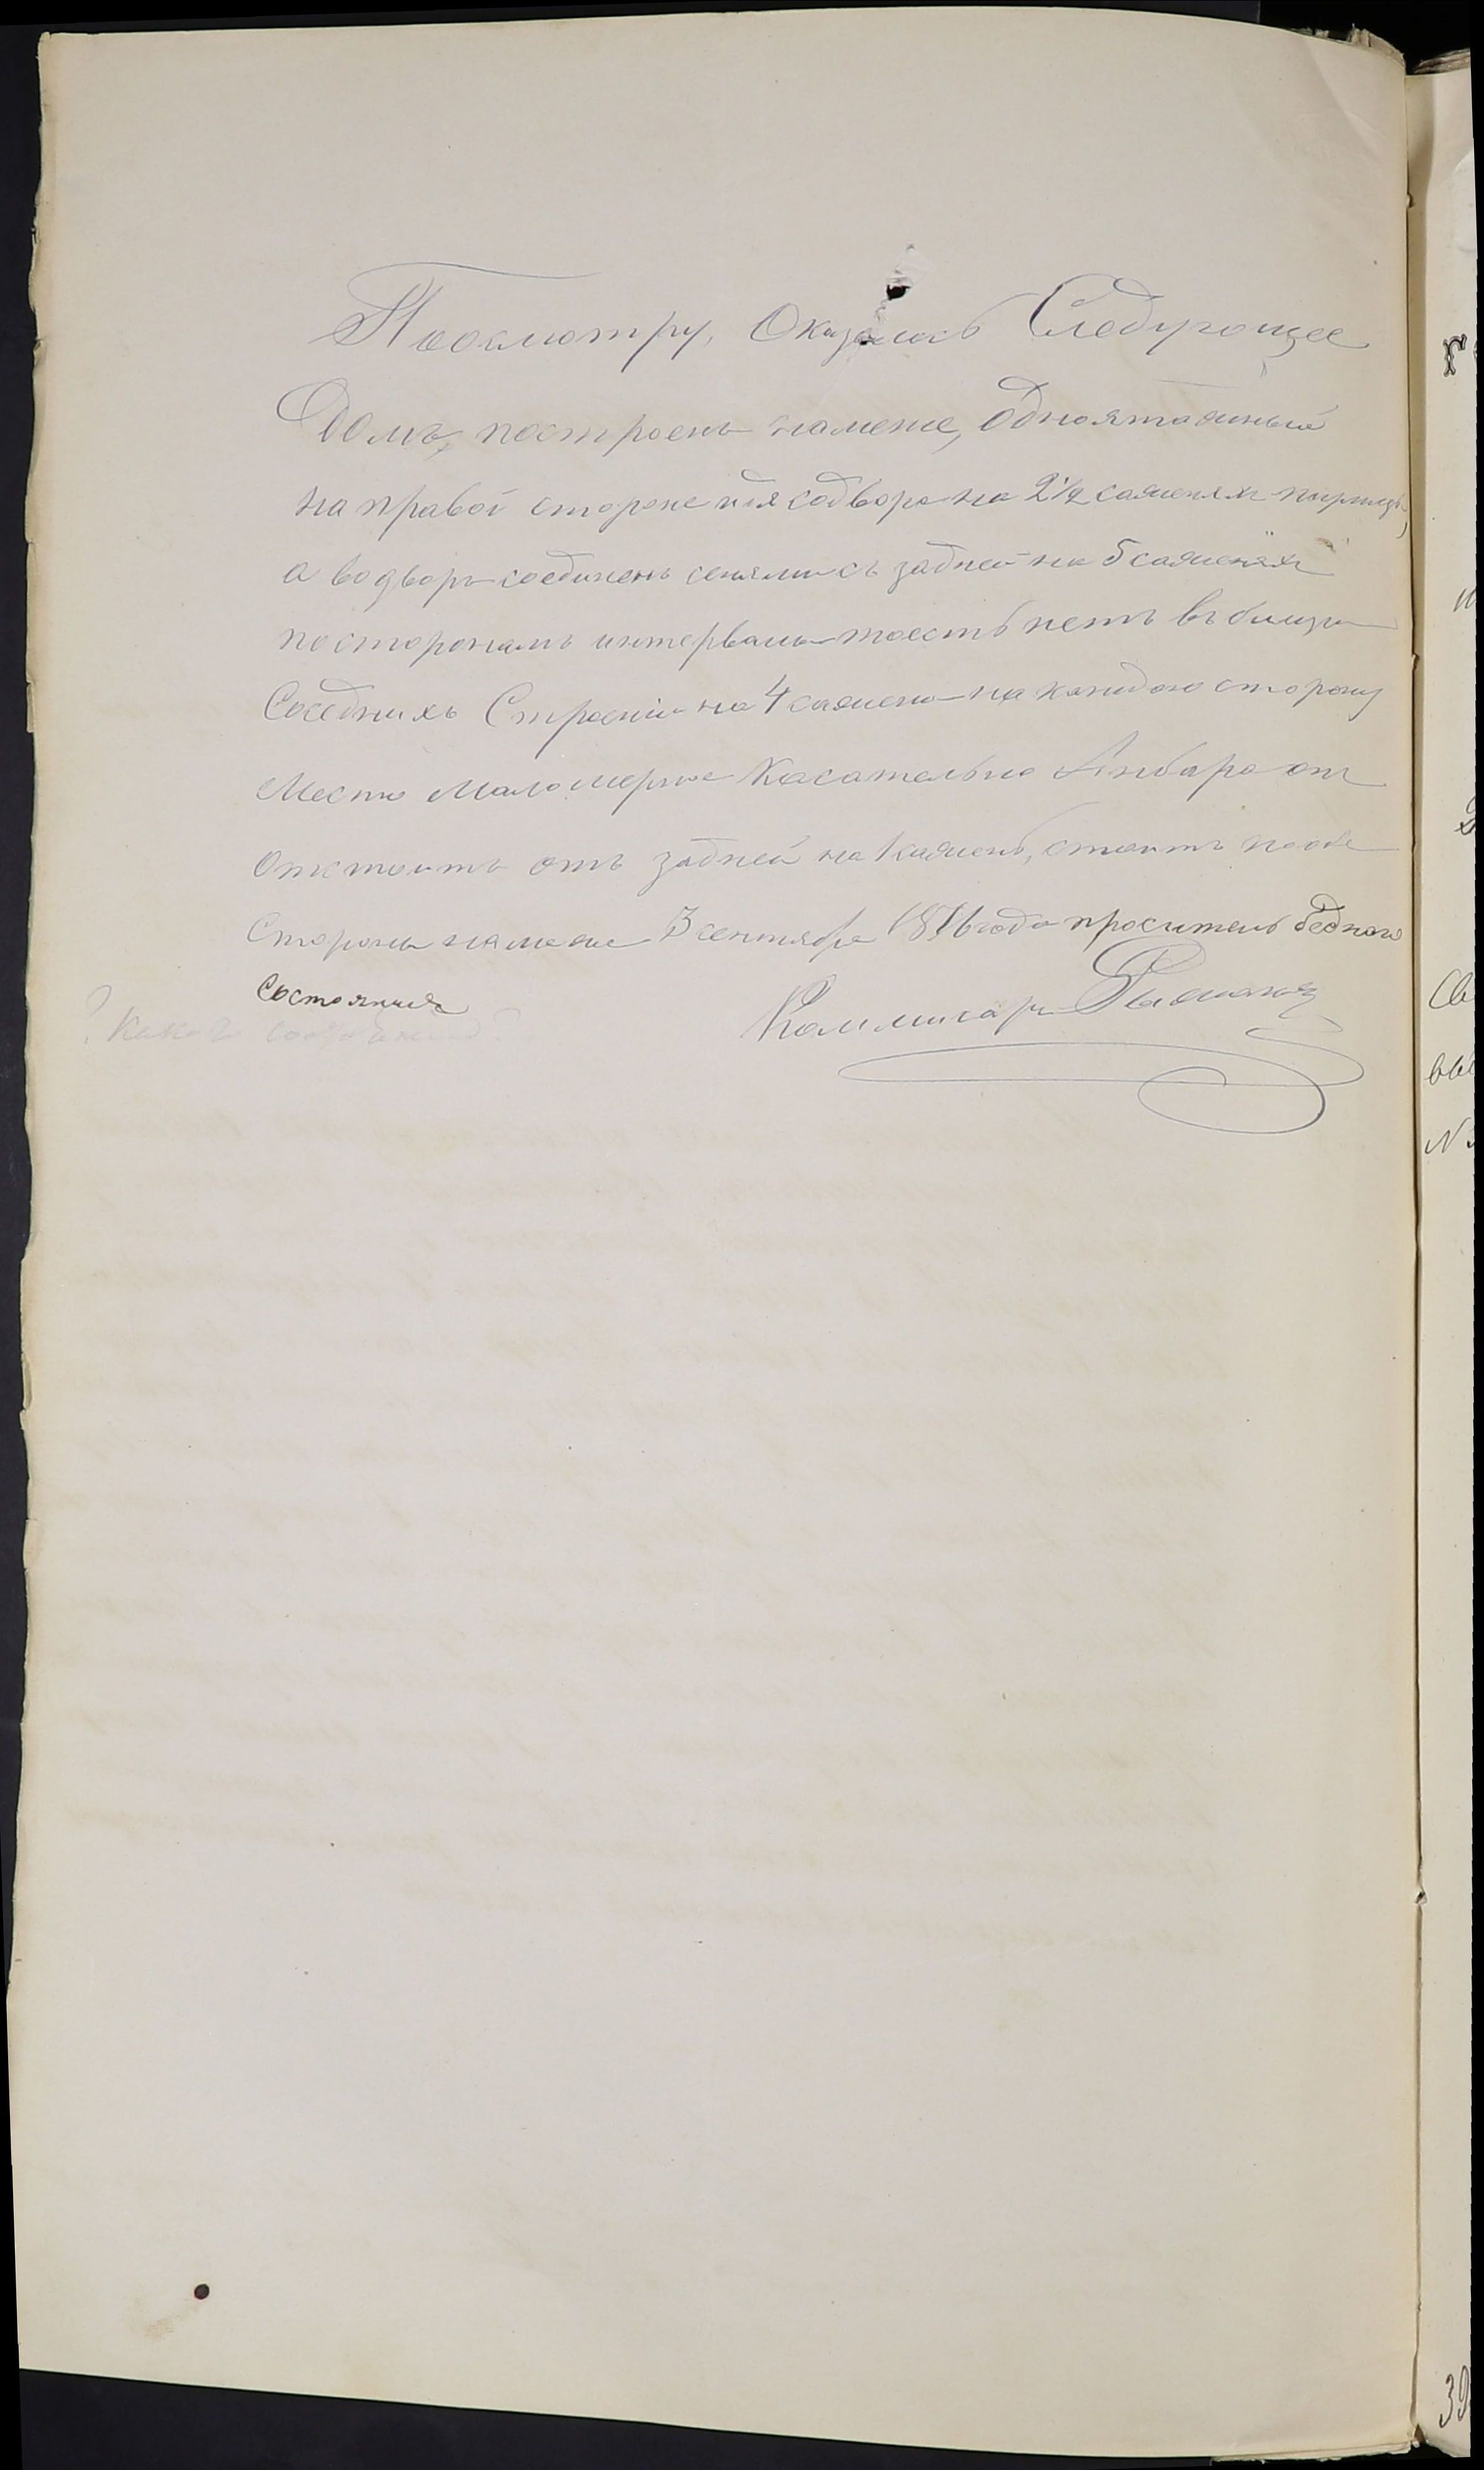 Поосмотру, Оказалось Следующее
Домъ, построенъ намеже, Одноэтажный
на правой стороне идя содвора на 2½ саженях
а во дворъ соединенъ сенями съ задней на 5 саженях
посторонамъ интервалы тоесть нетъ въ близи
Соседнихъ Строений на 4 сажени на каждою сторону
Место маломерное Касательно Анбара от
Отстоитъ отъ задней на 1 сажень, стоитъ по обе
Стороны на меже 3 сентября 1876 года проситель бедного
Состояния
Коммисаръ
? Какого состояния?